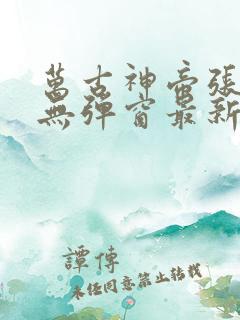 萬古神帝張
無彈窗最新
譚傳
未經同意禁止轉載